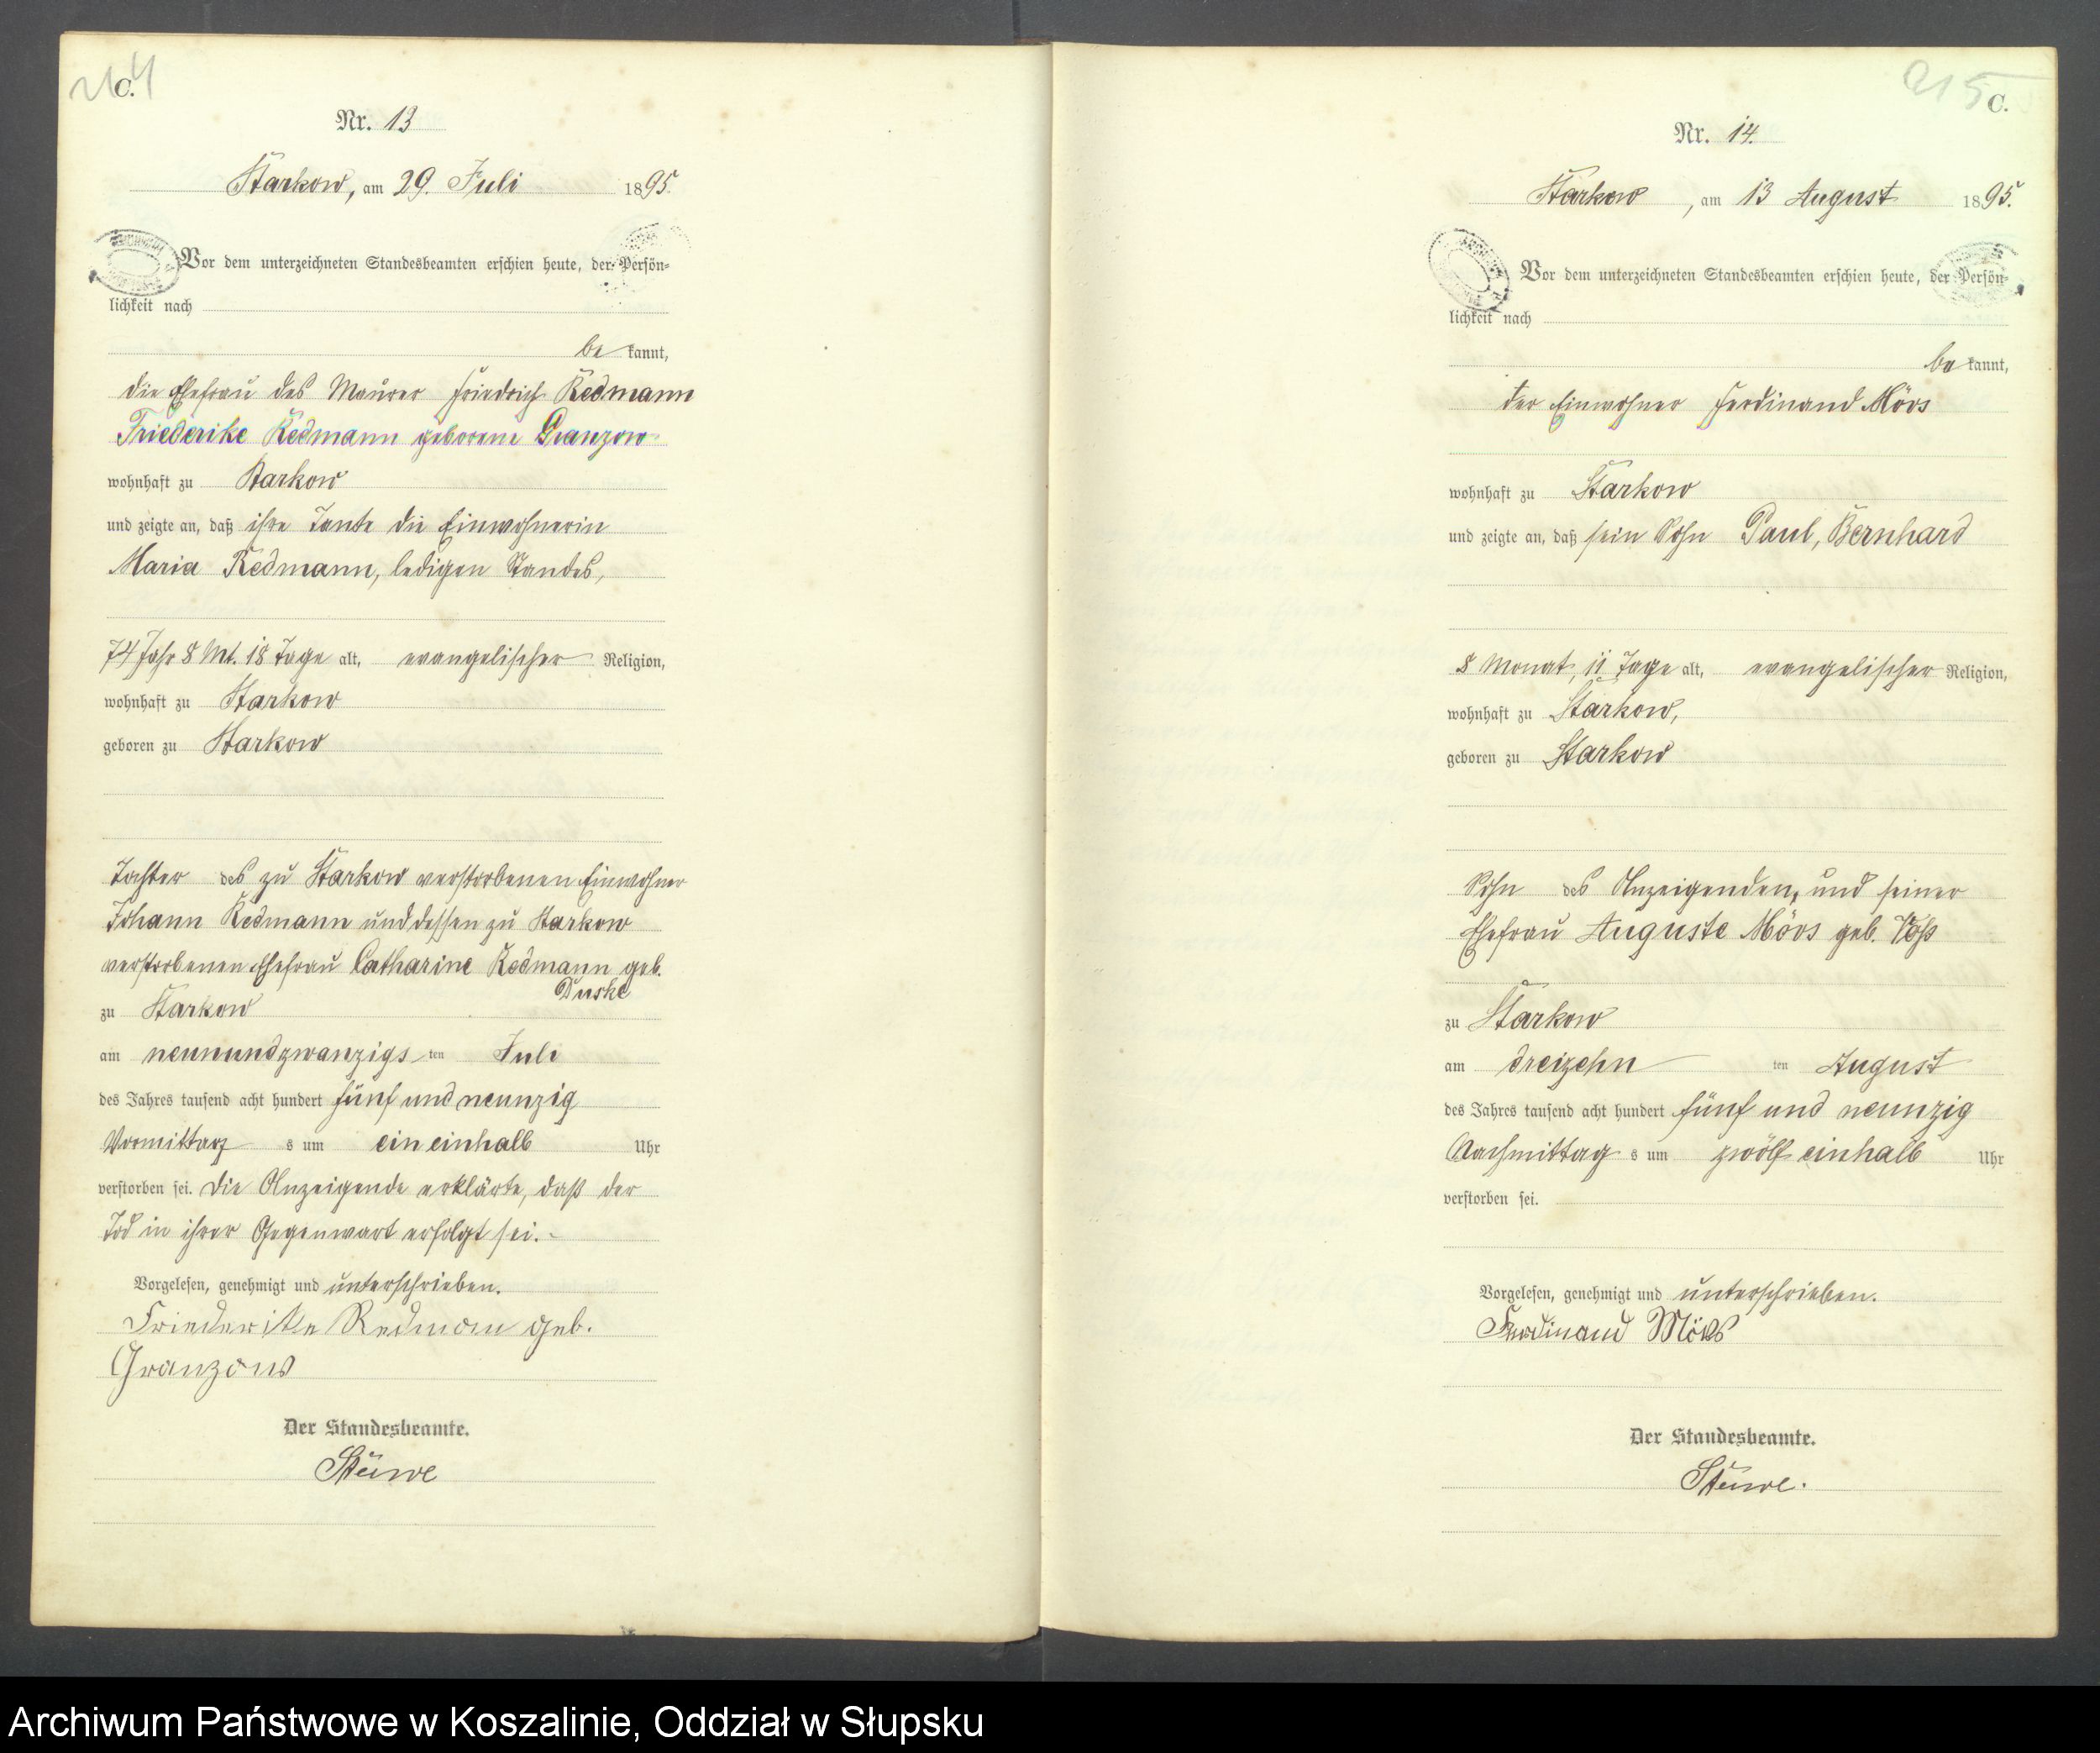 C.
Nr. 13
Starkow, am 29. Juli 1895.
Vor dem unterzeichneten Standesbeamten erschien heute, der Persön=
lichkeit nach
be kannt,
die Ehefrau des Maurer Friedrich Redmann
Friederike Redmann geborene Granzow
wohnhaft zu Starkow
und zeigte an, daß ihre Tante die Einwohnerin
Maria Redmann, ledigen Standes,
74 Jahr 8 Mt. 18 Tage alt, evangelischer Religion,
wohnhaft zu Starkow
geboren zu Starkow
Tochter des zu Starkow verstorbenen Einwohner
Johann Redmann und dessen zu Starkow
verstorbenen Ehefrau Catharine Redmann geb.
Duske
zu Starkow
am neunundzwanzigs ten Juli
des Jahres tausend acht hundert fünf und neunzig
Vormittag s um ein einhalb Uhr
verstorben sei. Die Anzeigende erklärte, daß der
Tod in ihrer Gegenwart erfolgt sei.-
Vorgelesen, genehmigt und unterschrieben.
Friederike Redman geb.
Granzow
Der Standesbeamte.
Stüwe
215
C.
Nr. 14.
Starkow, am 13 August 1895.
Vor dem unterzeichneten Standesbeamten erschien heute, der Persön=
lichkeit nach
be kannt,
der Einwohner Ferdinand Mörs
wohnhaft zu Starkow
und zeigte an, daß sein Sohn Paul, Bernhard
8 Monat, 11 Tage alt, evangelischer Religion,
wohnhaft zu Starkow,
geboren zu Starkow
Sohn des Anzeigenden, und seiner
Ehefrau Auguste Mörs geb. Voß
zu Starkow
am dreizehn ten August
des Jahres tausend acht hundert fünf und neunzig
Nachmittag s um zwölf einhalb Uhr
verstorben sei.
Vorgelesen, genehmigt und unterschrieben.
Ferdinand Mörs
Der Standesbeamte.
Stüwe.
Archiwum Państwowe w Koszalinie, Oddział w Słupsku